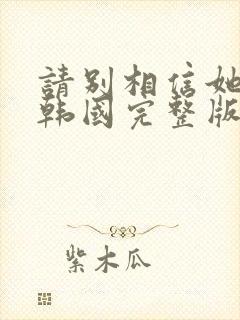 請別相信她
韩國完整版
紫木瓜